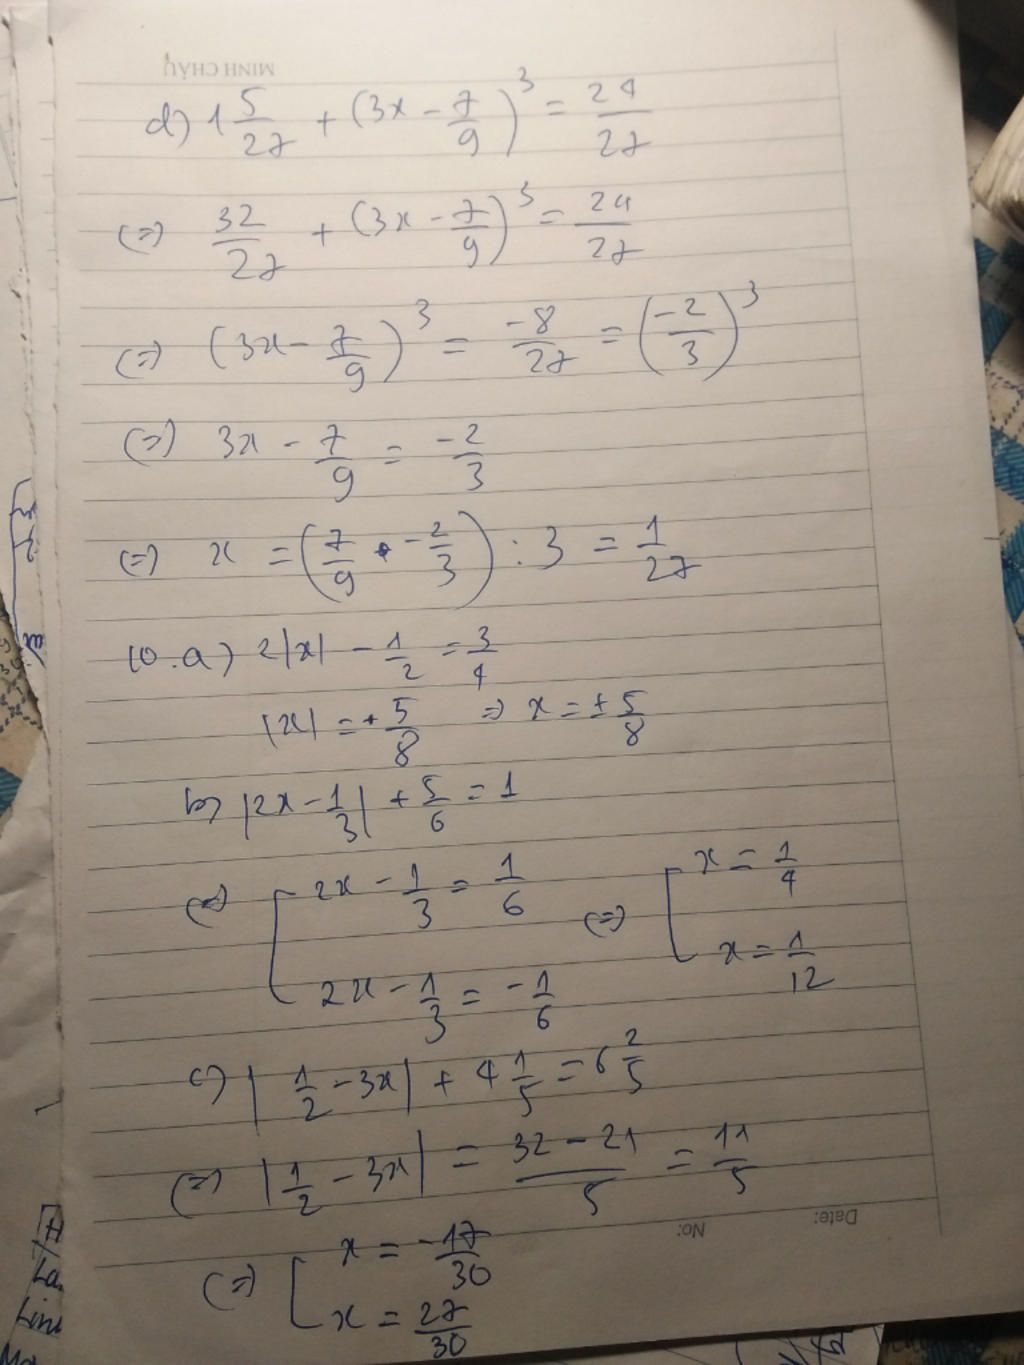 MINH CHÂU
d) 1 5/27 + (3x - 7/9)^3 = 24/27
(=) 32/27 + (3x - 7/9)^3 = 24/27
(=) (3x - 7/9)^3 = -8/27 = (-2/3)^3
(=) 3x - 7/9 = -2/3
(=) x = (7/9 + -2/3) : 3 = 1/27
10. a) 2|x| - 1/2 = 3/4
|x| = + 5/8 => x = ± 5/8
b) |2x - 1/3| + 5/6 = 1
(=) [ 2x - 1/3 = 1/6 (=) [ x = 1/4
2x - 1/3 = -1/6 x = 1/12
c) | 1/2 - 3x | + 4 1/5 = 6 2/5
(=) | 1/2 - 3x | = 32 - 21/5 = 11/5
(=) [ x = -17/30
x = 27/30
No:
Date: